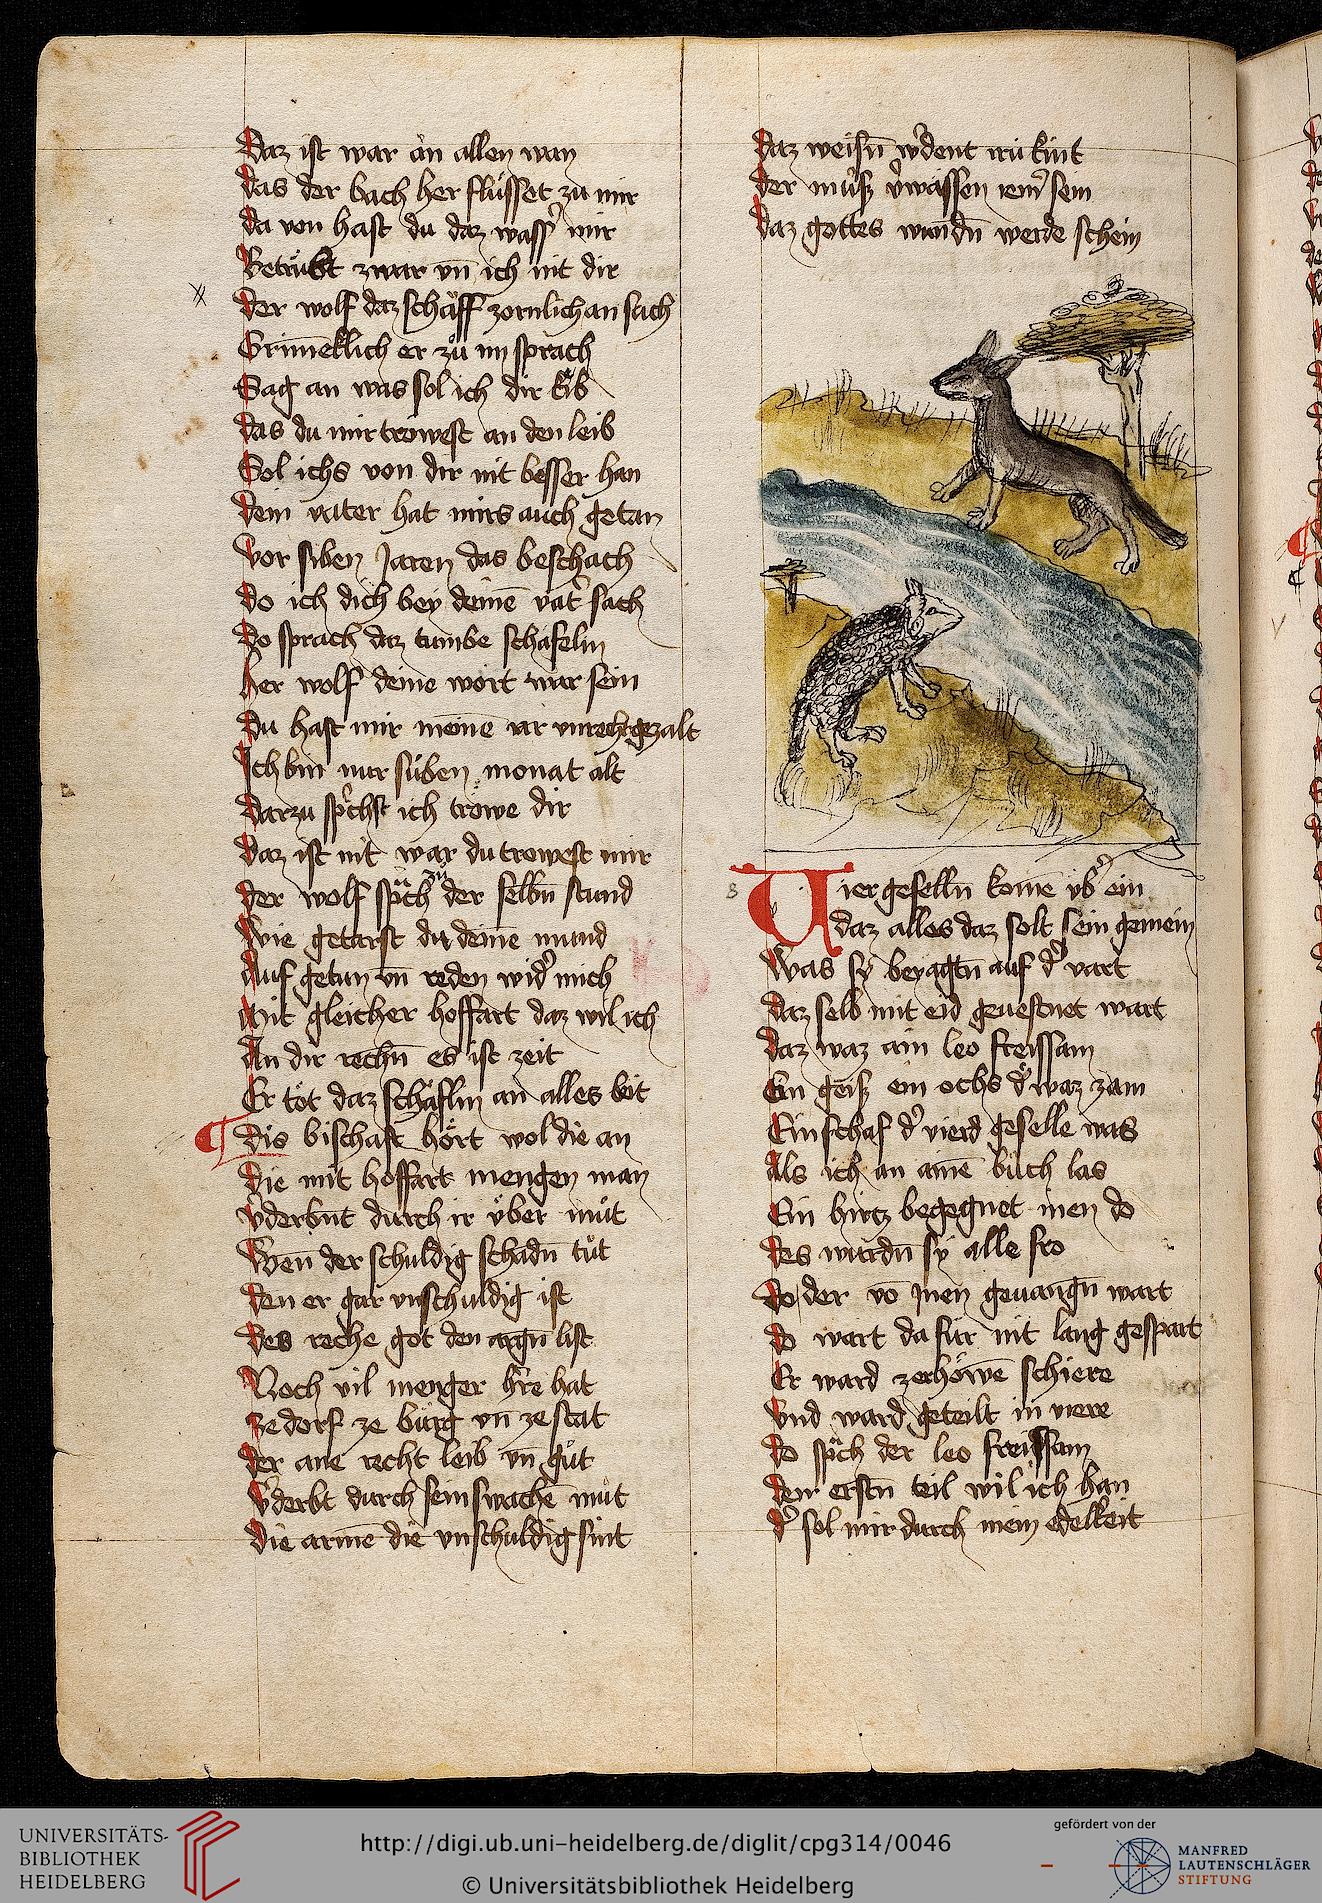 Daz ist war ȧn allen wan
Das der bach her flüsset zu mir
Da von hast du daz wass' mir
Betrübt zwar vn̄ ich nit dir
Der wolf daz schäff zornlich an sach
Grim̄eklich er zů im sprach
Sag an was sol ich dir
Das du mir trowest an den leib
Sol ichs von dir nit besser han
Dein vater hat mirs auch getan
Vor siben Jaren das beschach
Do ich dich bey deinē vat' sach
Do sprach daz tumbe schafelin
Her wolf deine wort war sein
Du hast mir meine iar vnrecht gezalt
Ich bin nur süben monat alt
Darzu sp'chst ich tröwe dir
Daz ist nit war du trowest mir
Der wolf sp̈ch zü der selbn̄ stund
Wie getarst du deinē mund
Auf getun vn̄ reden wid' mich
Mit gleicher hoffart daz wil ich
An dir rechn̄ es ist zeit
Er töt daz schäflin an alles bit
Dis bischaft hört wol die an
Die mit hoffart mengen man
V'derbnt durch ir über můt
Wen̄ der schuldig schadn̄ tůt
Den er gar vnschuldig ist
Des reche got den argn̄ list
Noch vil menger h're hat
Ze dorf ze bürg vn̄ ze stat
Der ane recht leib vn̄ gůt
V'derbt durch sein swachē můt
Die armē die vnschuldig sint
Daz weisn̄ w'dent irü kint
Der můsz v'wassen iem' sein
Daz gottes wundn̄ werde schein
8
Vier geselln̄ komē vb' ein
Daz alles daz solt sein gemein
Was sy beyagtn̄ auf d' vart
Daz selb mit eid geuestnet wart
Daz waz ain leo freissam
Ein geisz ein ochs d' waz zam
Ein schaf d' vierd geselle was
Als ich an ainē büch las
Ein hirtz begegnet inen do
Des wurdn̄ sy alle fro
Do der vō inen geuangn̄ wart
Do wart da für nit lang gespart
Er ward zerhöwē schiere
Vnd ward geteilt in viere
Do sp̈ch der leo freissam
Den erstn̄ teil wil ich han
D' sol mir durch mein edelkeit
UNIVERSITÄTS-
BIBLIOTHEK
HEIDELBERG
http://digi.ub.uni-heidelberg.de/diglit/cpg314/0046
© Universitätsbibliothek Heidelberg
gefördert von der
MANFRED
LAUTENSCHLÄGER
STIFTUNG